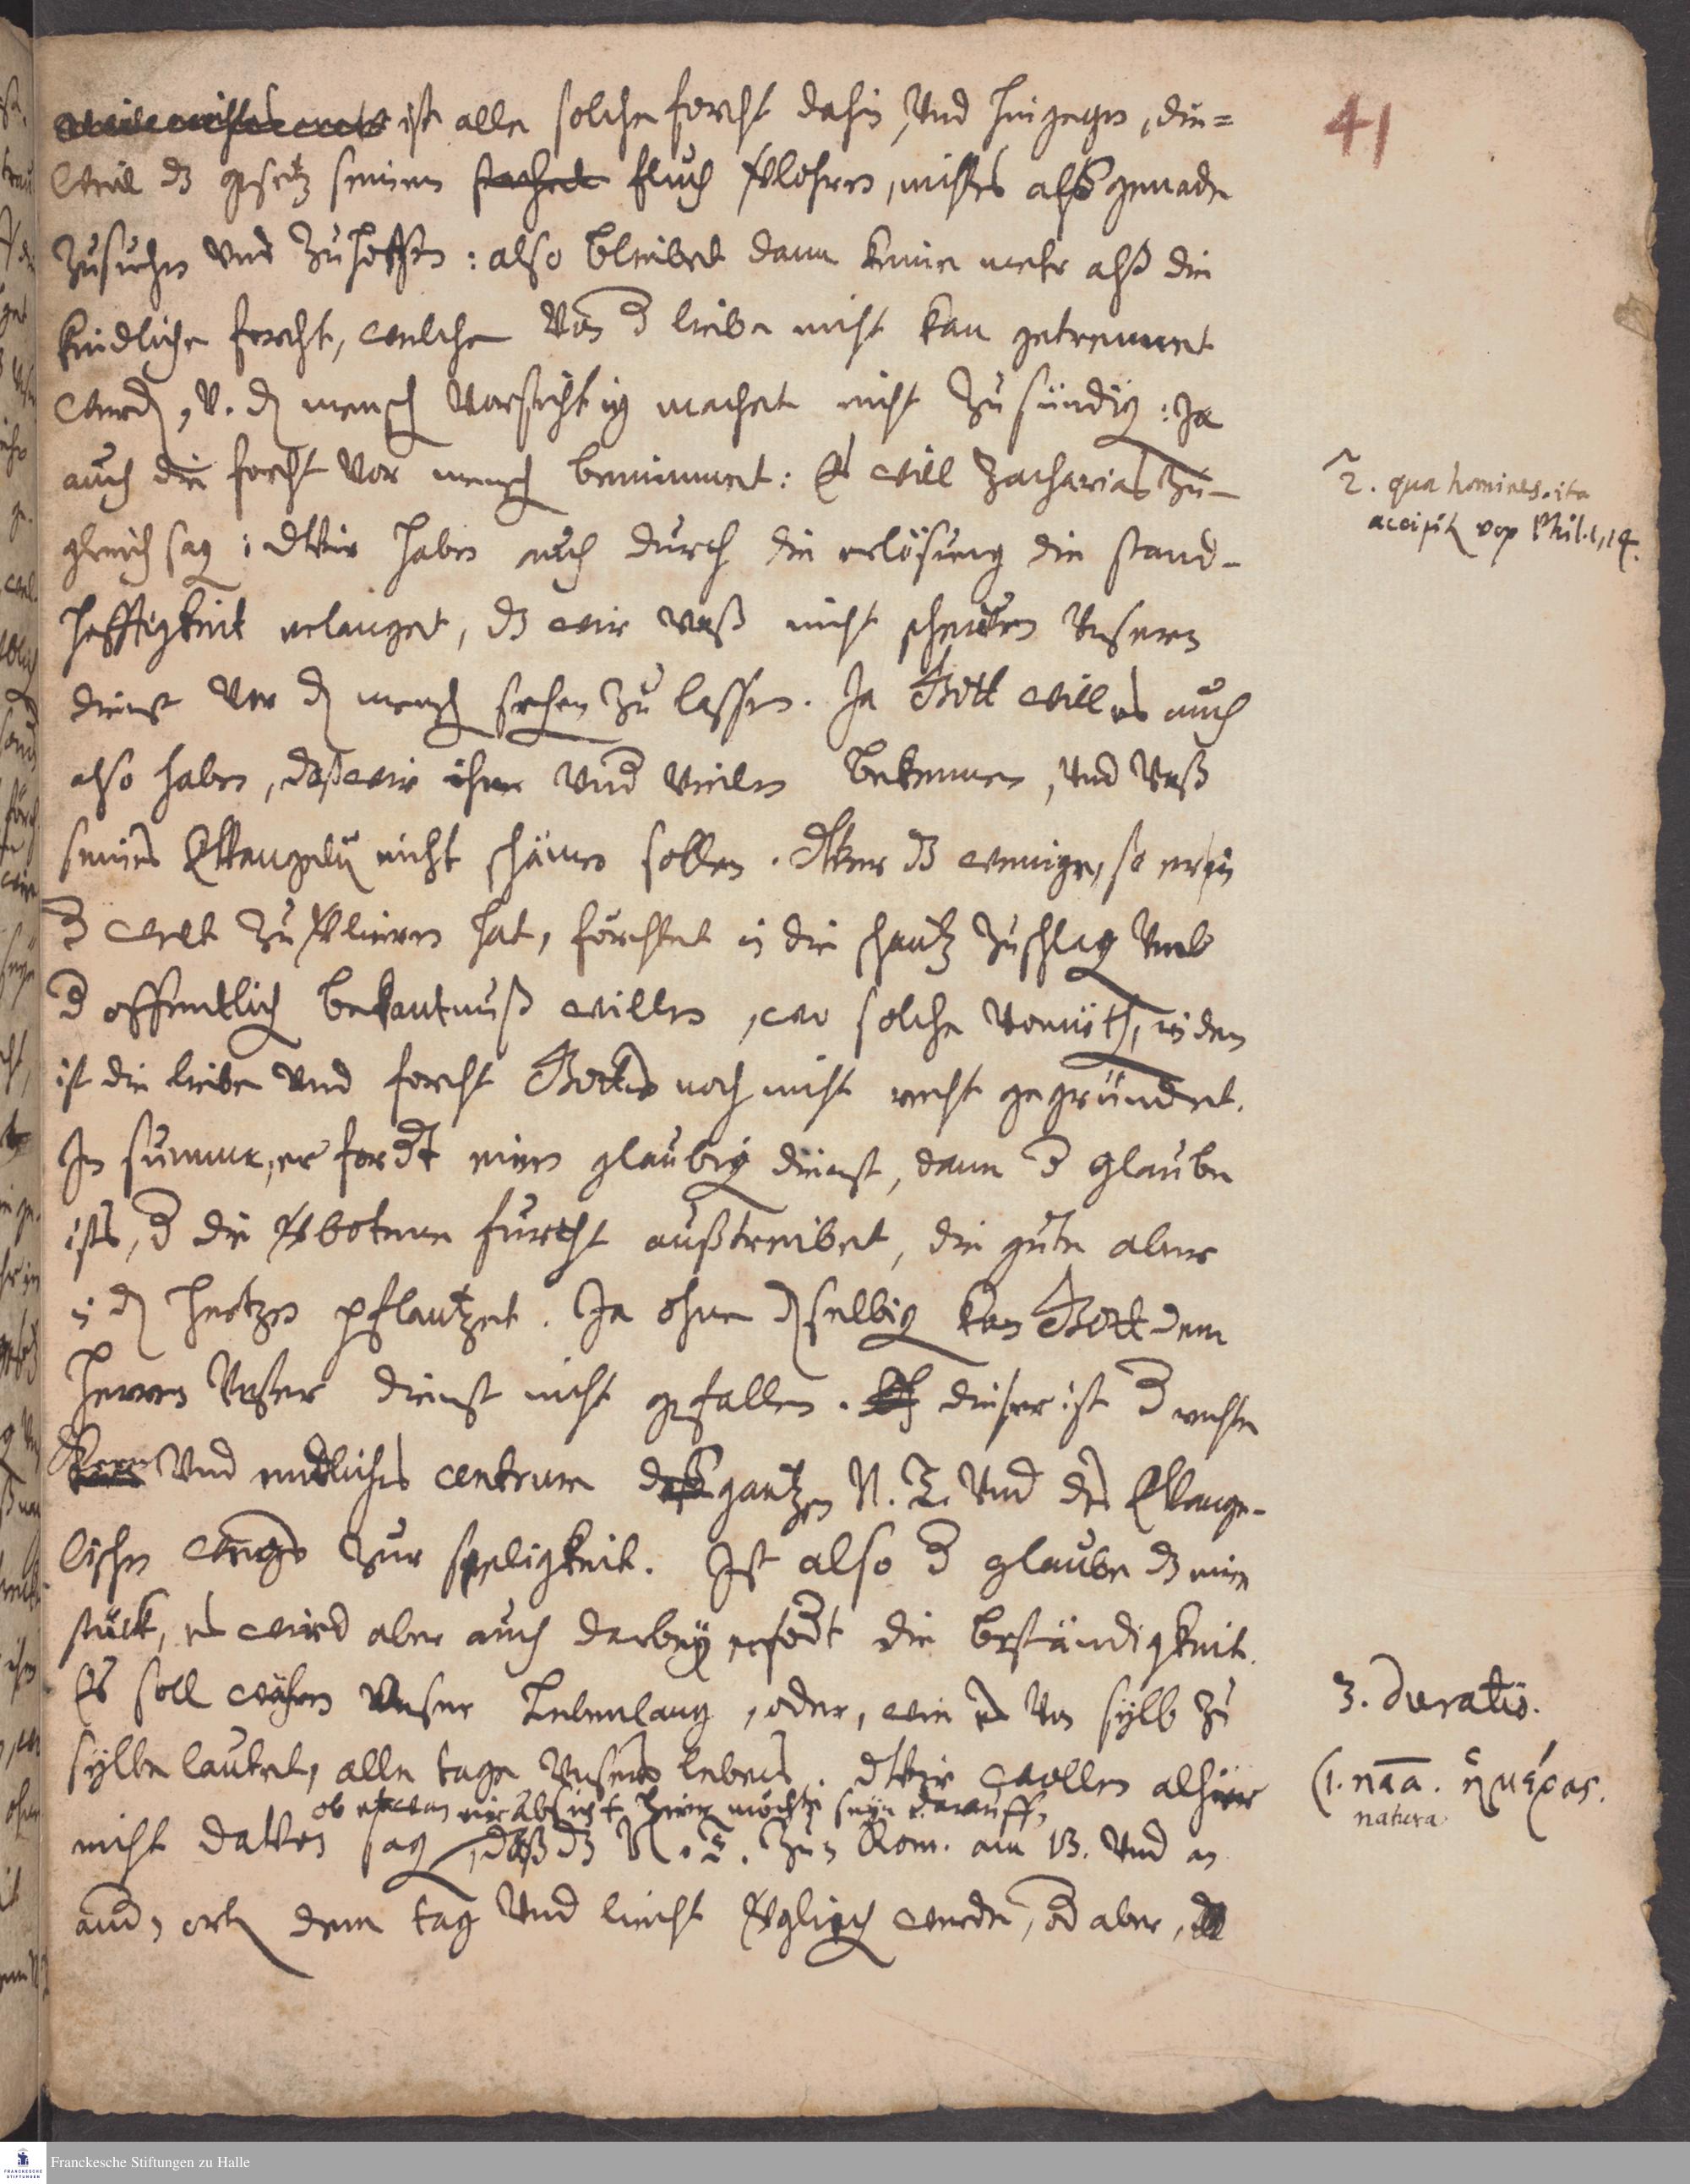 41
ist alle solche forcht dahin, Vnd hingegen, die=
weil dz gesetz seinen fluch verlohren, nichts alß genade
zusuchen Vnd zuhoffen: also bleibet dann keine mehr alß die
kindliche forcht, welche Von d liebe nicht kan getrennet
werden, V. den mensch Vorsichtig machet nicht zu sündig: Ja
auch die forcht Vor mensch benimmet: Es will Zacharias zu-
gleich sag: Wir haben auch durch die erlösung die stand-
hafftigkeit erlanget, dz wir Vnß nicht scheuen Vnseren
dienst Vor den mensch sehen zu lassen. Ja Gott will es auch
also haben, daß wir ihn Vnd Vielen bekennen, Vnd Vnß
seines Evangelii nicht schämen sollen. Wer dz wenige, so er in
d welt zu verlieren hat, förchtet in die schantz zuschlag Vmb
d offentlich bekantnuß willen, wo solche Vonnöth, in dem
ist die liebe Vnd forcht Gottes noch nicht recht gegründet.
In summa, er fordt einen glaubig dienst, dann d glaube
ists, d die verbotene furcht außtreibet, die gute aber
in den hertzen pflantzet. Ja ohne denselbig kan Gott dem
Herren Vnser dienst nicht gefallen. dieser ist d rechte
Kern Vnd endliches centrum deß gantzen N. T. Vnd des Evange-
lischen wegs zur seeligkeit. Ist also d glaube dz eine
stuck, es wird aber auch darbey erfodt die beständigkeit.
Es soll währen Vnser Lebenlang, oder, wie es Von sylb zu
sylbe lautet, alle tage Vnsers lebens. Wir wollen alhier
ob etwan ein absicht hier möchte seyn darauff,
nicht davon sag, daß dz N. T. zun Rom. am 13. Vnd an
and, orten dem tag Vnd liecht verglich werde, od aber,
2. qua homines. ita
accipit vop Phil. 1, 14.
3. duratio.
(1. naa. ἡμέρας.
natura
Franckesche Stiftungen zu Halle